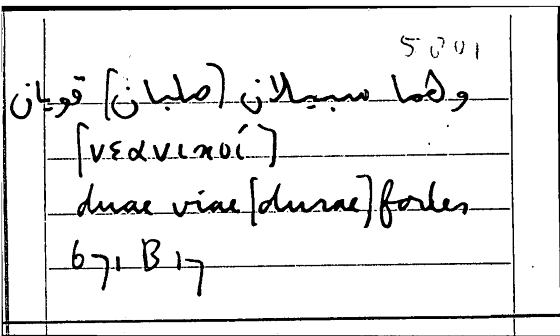 5001
وهما سبيلان [صلبان] قويان
[νεανικοί]
duae viae [durae] fortes
671 B 17